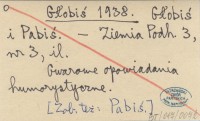 Głobiś 1938. Głobiś
i Pabiś. — Ziemia Podh. 3,
nr 3, il.
Gwarowe opowiadania
humorystyczne.
[Zob. też: Pabiś.]